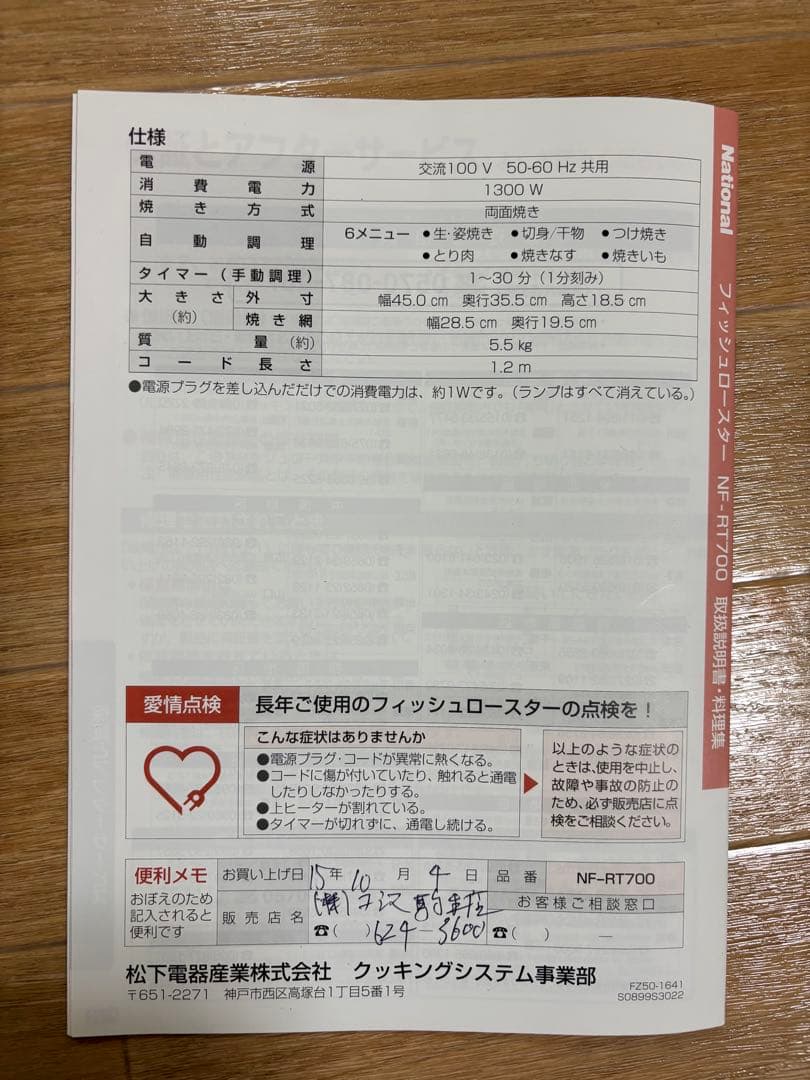 仕様
電源 交流100 V 50-60 Hz 共用
消費電力 1300 W
焼き方式 両面焼き
自動調理 6メニュー ●生・姿焼き ●切身/干物 ●つけ焼き
●とり肉 ●焼きなす ●焼きいも
タイマー(手動調理) 1～30 分(1分刻み)
大きさ(約) 外寸 幅45.0 cm 奥行35.5 cm 高さ18.5 cm
焼き網 幅28.5 cm 奥行19.5 cm
質量(約) 5.5 kg
コード長さ 1.2 m
●電源プラグを差し込んだだけでの消費電力は、約1Wです。(ランプはすべて消えている。)
National フィッシュロースター NF-RT700 取扱説明書・料理集
愛情点検 長年ご使用のフィッシュロースターの点検を！
こんな症状はありませんか
●電源プラグ・コードが異常に熱くなる。
●コードに傷が付いていたり、触れると通電
したりしなかったりする。
●上ヒーターが割れている。
●タイマーが切れずに、通電し続ける。
以上のような症状の
ときは、使用を中止し、
故障や事故の防止の
ため、必ず販売店に点
検をご相談ください。
便利メモ
おぼえのため
記入されると
便利です
お買い上げ日 15年 10月 4日 品番 NF-RT700
販売店名
☎( ) 624-3600
お客様ご相談窓口
☎( ) —
松下電器産業株式会社 クッキングシステム事業部
〒651-2271 神戸市西区高塚台1丁目5番1号
FZ50-1641
S0899S3022